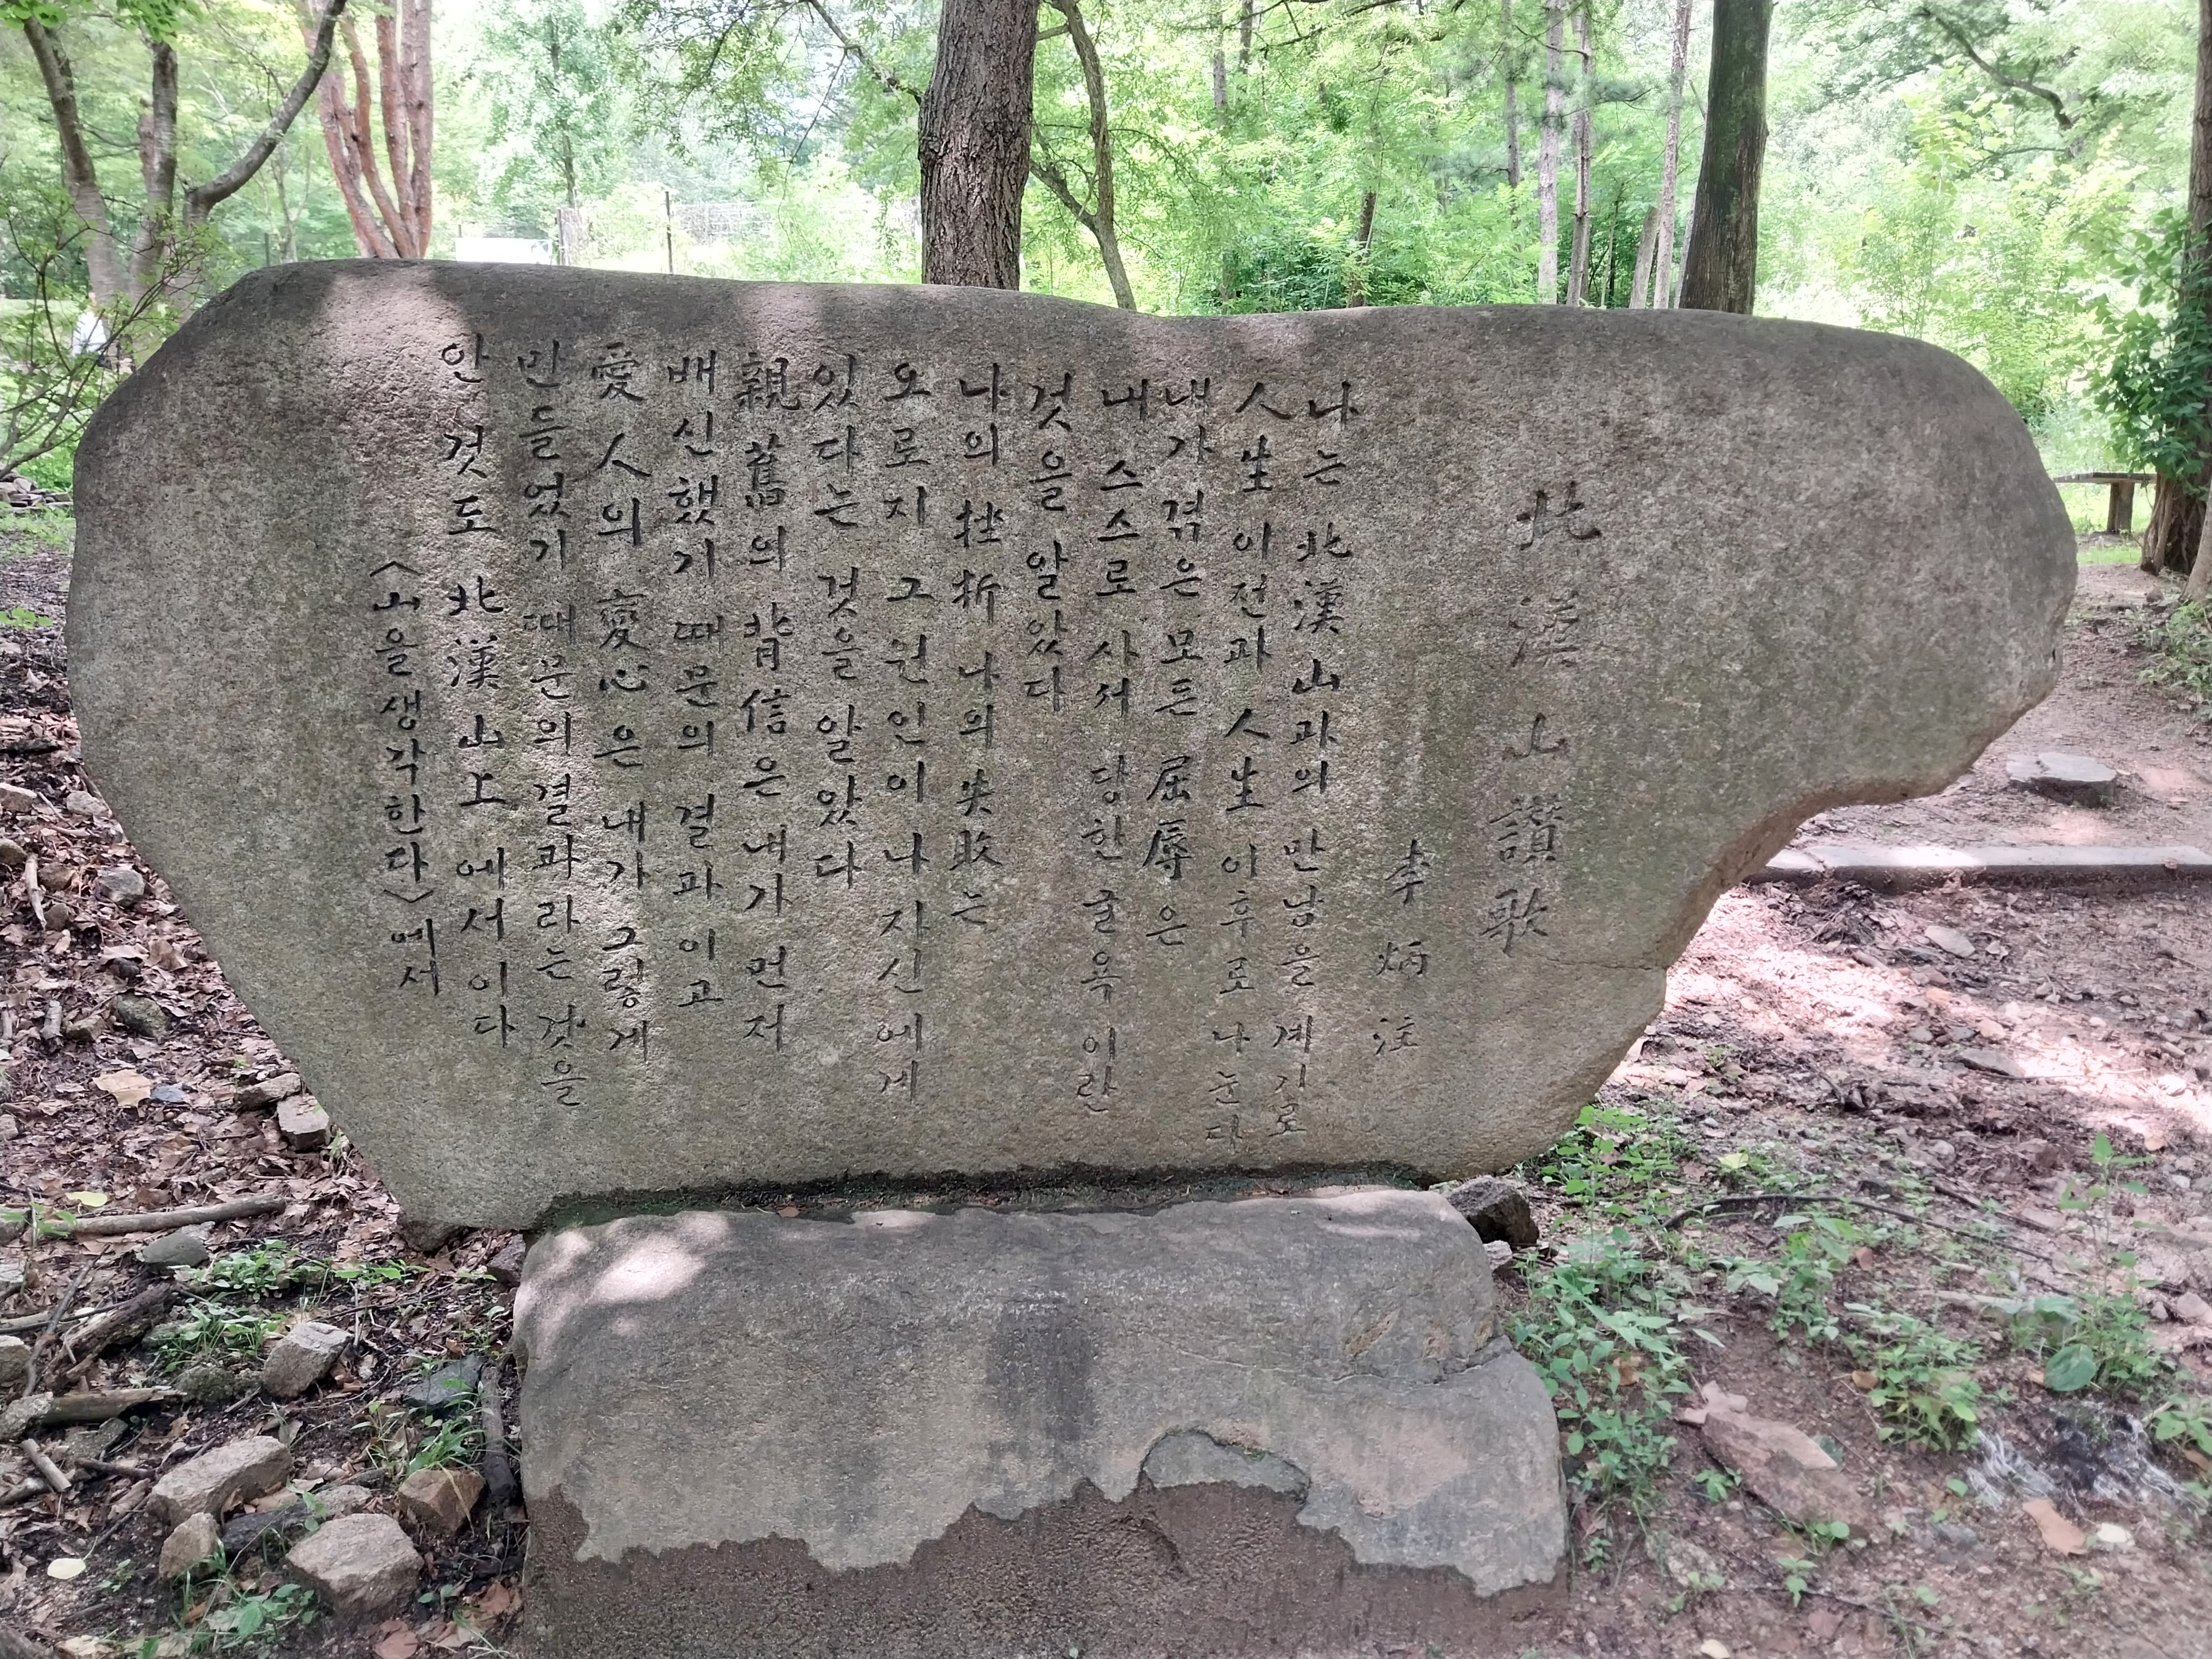 北漢山讚歌
李炳注
나는 北漢山과의 만남을 계기로
人生 이전과 人生 이후로 나눈다
내가 겪은 모든 屈辱은
내 스스로 사서 당한 굴욕이란
것을 알았다
나의 挫折 나의 失敗는
오로지 그 원인이 나 자신에게
있다는 것을 알았다
親舊의 背信은 내가 먼저
배신했기 때문의 결과이고
愛人의 變心은 내가 그렇게
만들었기 때문의 결과라는 것을
안 것도 北漢山上에서이다
<山을 생각한다>에서